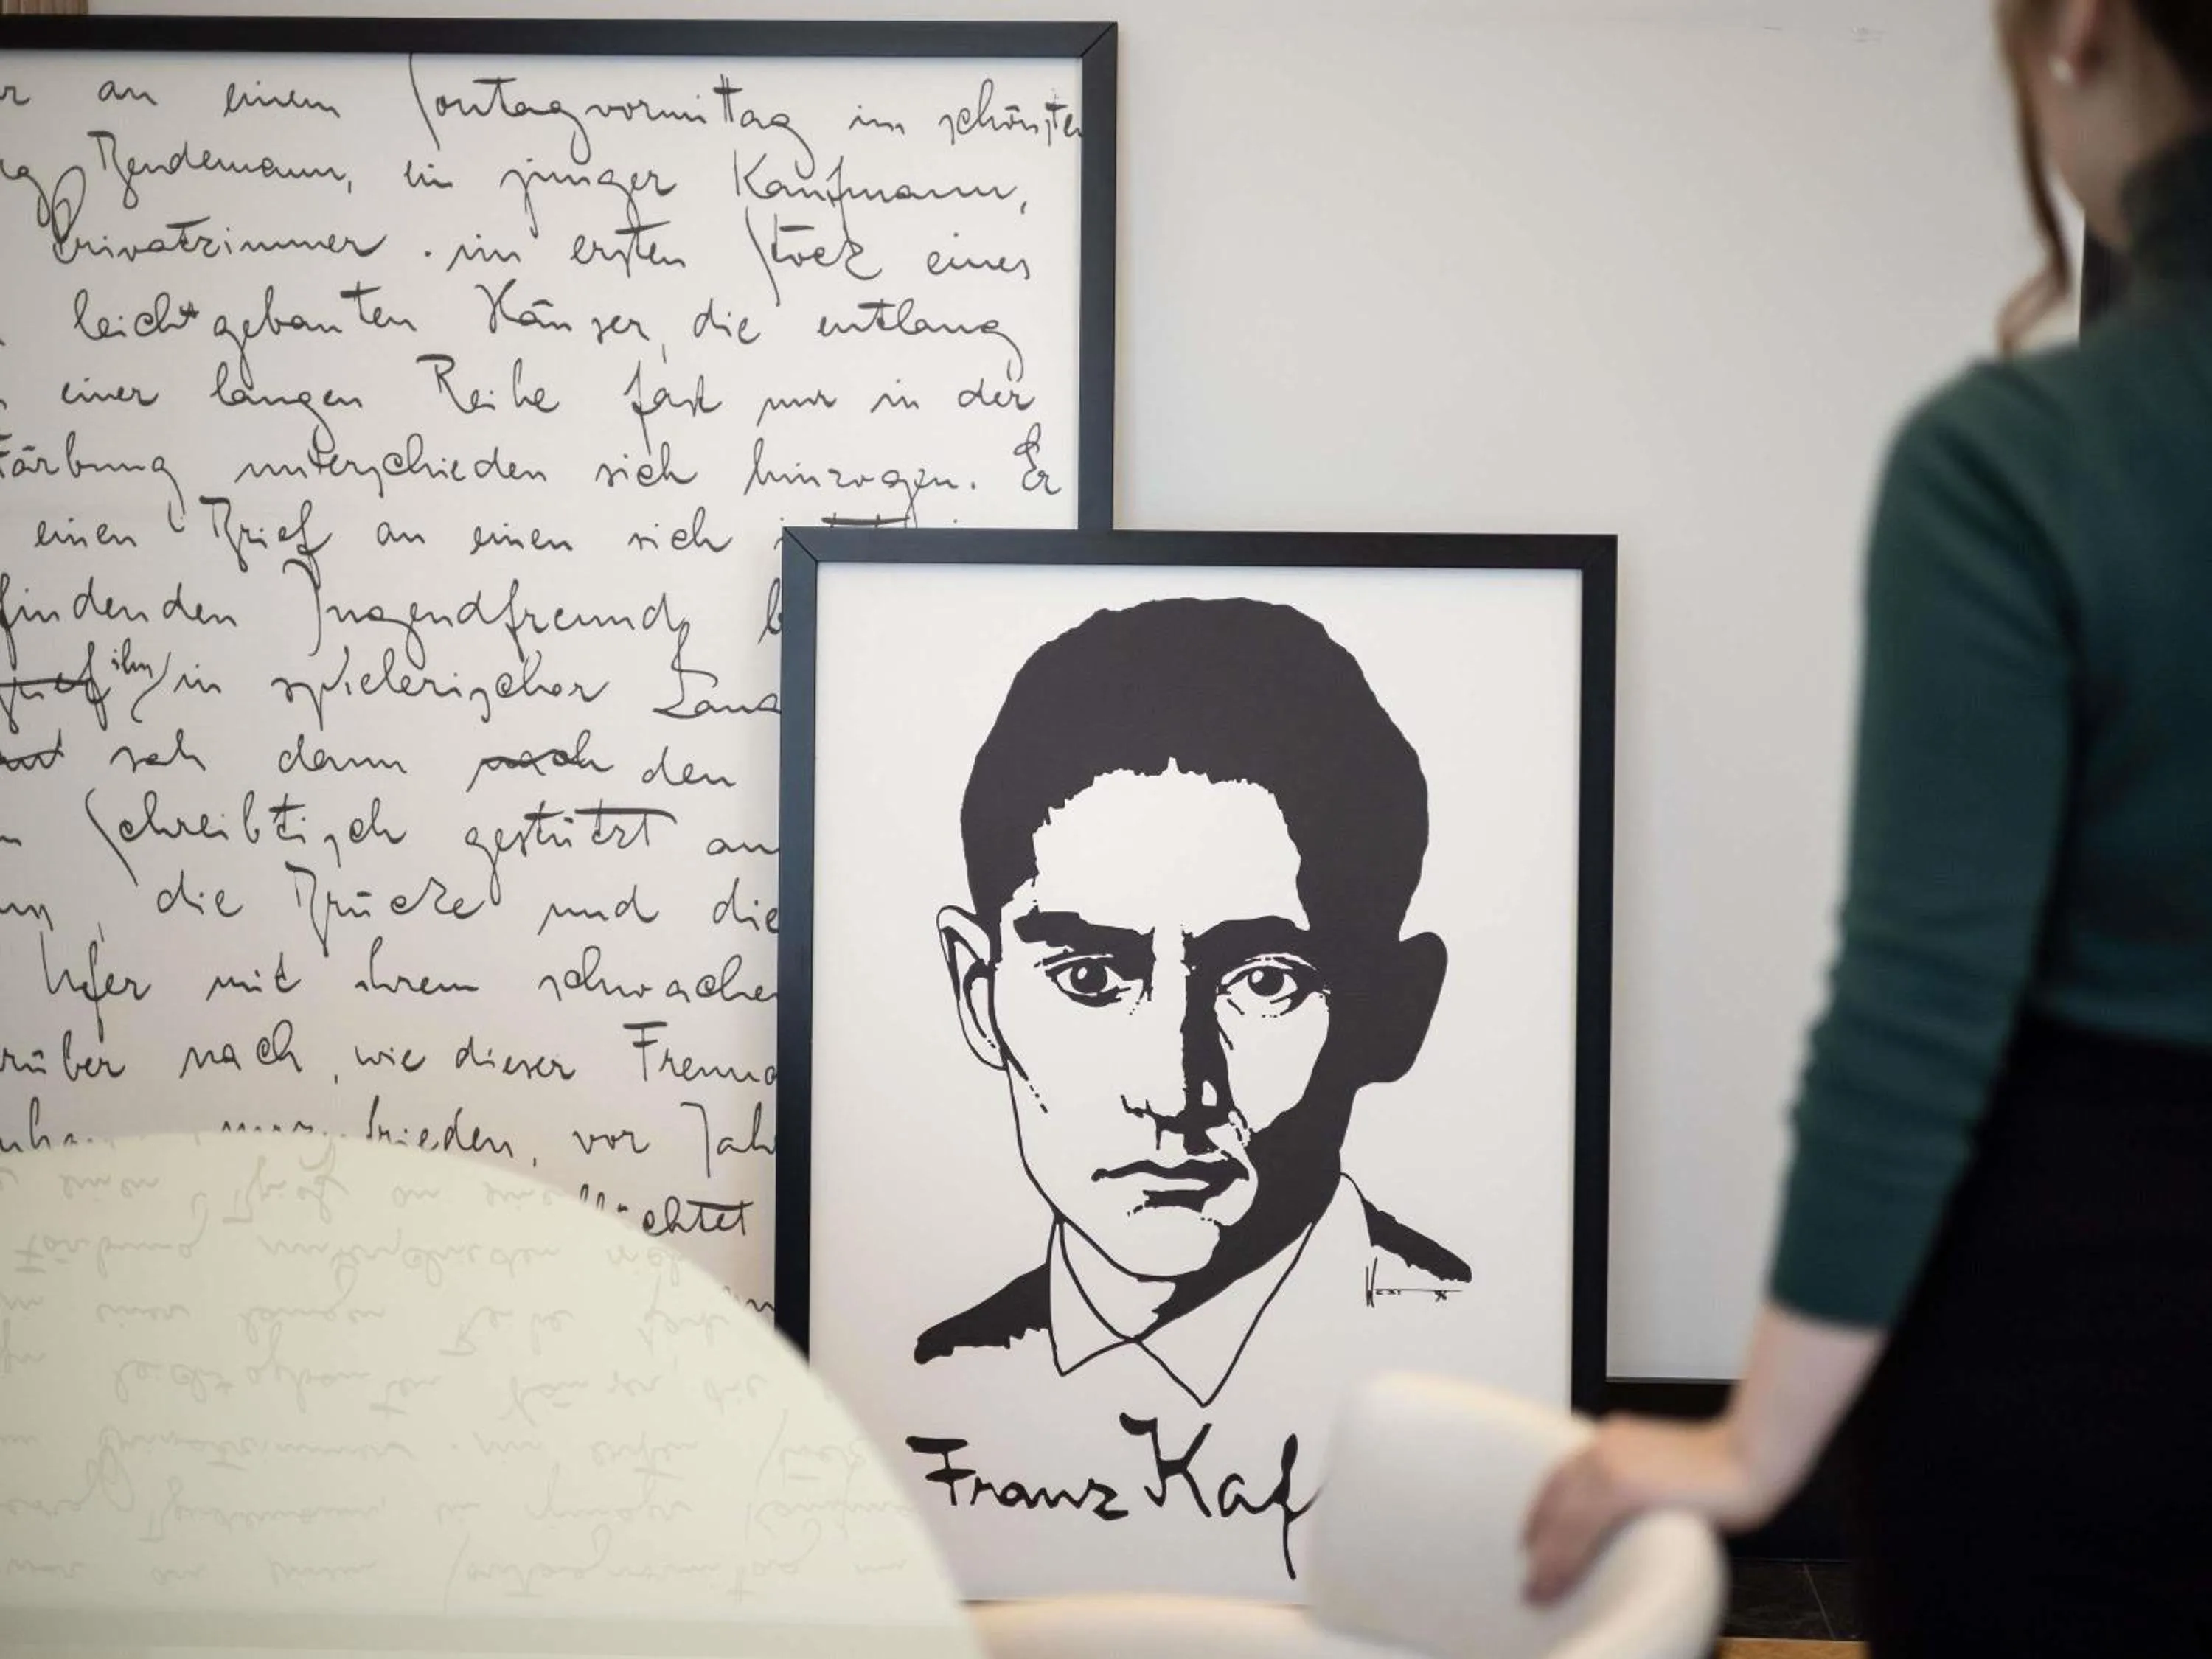 an einem Sontagvormittag im schönsten
Bendemann, ein junger Kaufmann,
Privatzimmer im ersten Stock eines
leichtgebauten Häuser, die entlang
einer langen Reihe fast nur in der
Färbung unterschieden sich hinzogen. Er
einen Brief an einen sich
findenden Jugendfreund b
ihm in spielerischer Lang
sah dann nach den
Schreibtisch gestützt au
die Brücke und die
Ufer mit ihrem schwachen
rüber nach, wie dieser Freund
frieden, vor Jah
üchtet
Franz Kaf